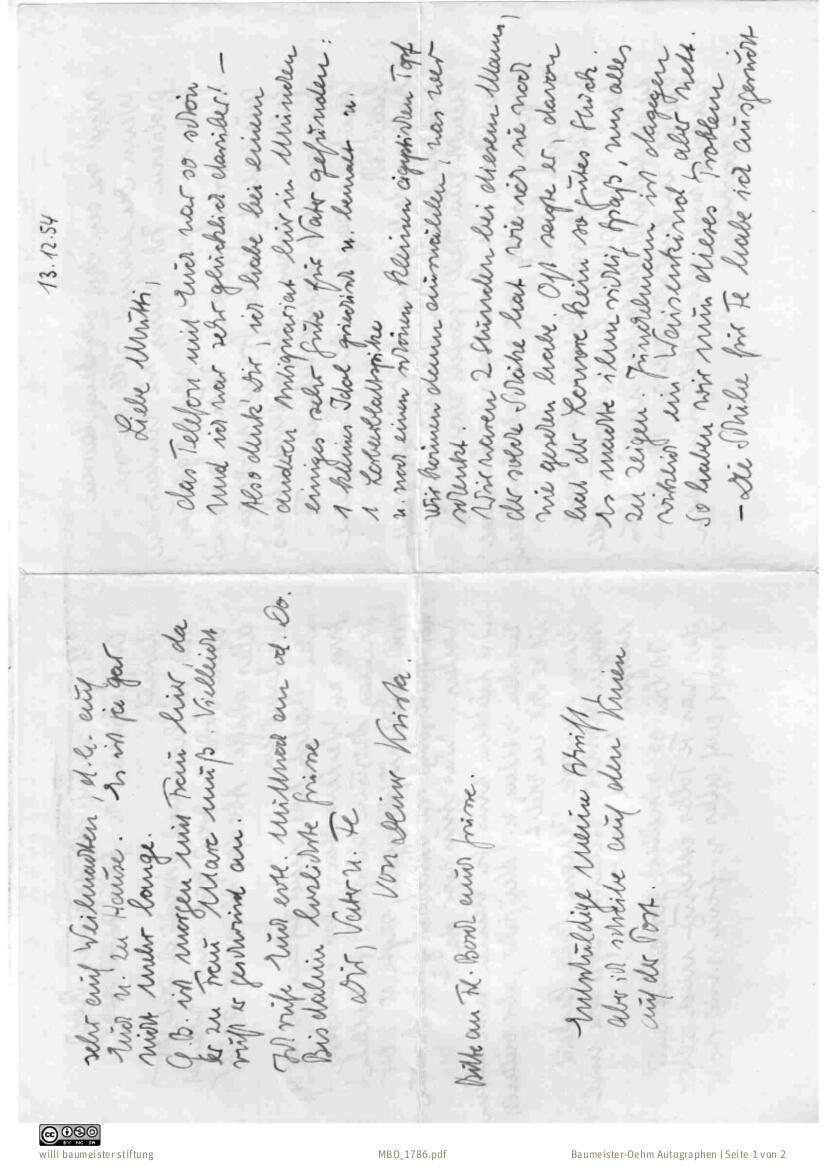 13.12.54
Liebe Mutti,
das Telefon mit Euch war so schön
und ich war sehr glücklich darüber! –
Also denk' Dir, ich habe bei einem
andren Antiquariat hier in München
einiges sehr gute für Vater gefunden:
1 kleines Idol griechisch u. bemalt u.
1 Lorbeerblattspitze
u. noch einen schönen kleinen ägyptischen Topf
Wir können dann auswählen, was wer
schenkt.
Wir waren 2 Stunden bei diesem Mann,
der solche Schätze hat, wie ich sie noch
nie gesehen habe. Oft sagte er, davon
hat der Louvre kein so gutes Stück.
Es machte ihm richtig Spaß, uns alles
zu zeigen. Zündelmann ist dagegen
wirklich ein Waisenkind, aber nett.
So haben wir nun dieses Problem
– Die Schuhe für Fe habe ich ausgesucht
sehr auf Weihnachten, d.h. auf
Euch u. zu Hause. Es ist ja gar
nicht mehr lange.
G.B. ist morgen mit Frau hier, da
er zu Frau Marc muß. Vielleicht
ruft er geschwind an.
Ich rufe Euch evtl. Mittwoch an od. Do.
Bis dahin herzlichste Grüsse
Dir, Vater u. Fe
von Deiner Krista.
Bitte an Frl. Bock auch Grüsse.
Entschuldige meine Schrift,
aber ich schreibe auf den Knien
auf der Post.
willi baumeister stiftung
MBO_1786.pdf
Baumeister-Oehm Autographen | Seite 1 von 2